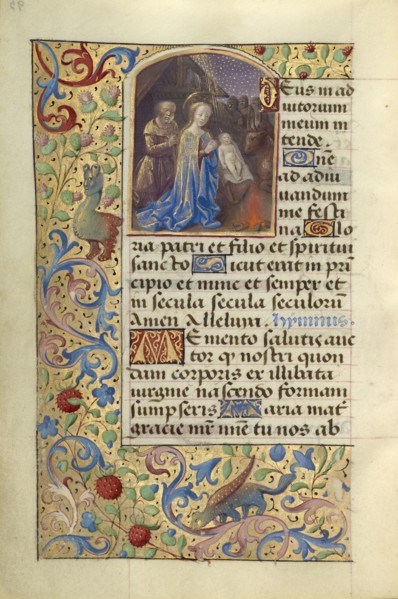 Eus in ad
iutorium
meum in
tende. One
ad adiu
uandum
me festi
na Glo
ria patri et filio et spiritui
sancto Sicut erat in prin
cipio et nunc et semper et
in secula secula seculorum
Amen Alleluya. hymnus.
Memento salutis auc
tor q nostri quon
dam corporis ex illibata
uirgine nascendo formam
sumpseris Maria mat
gracie mr mie tu nos ab